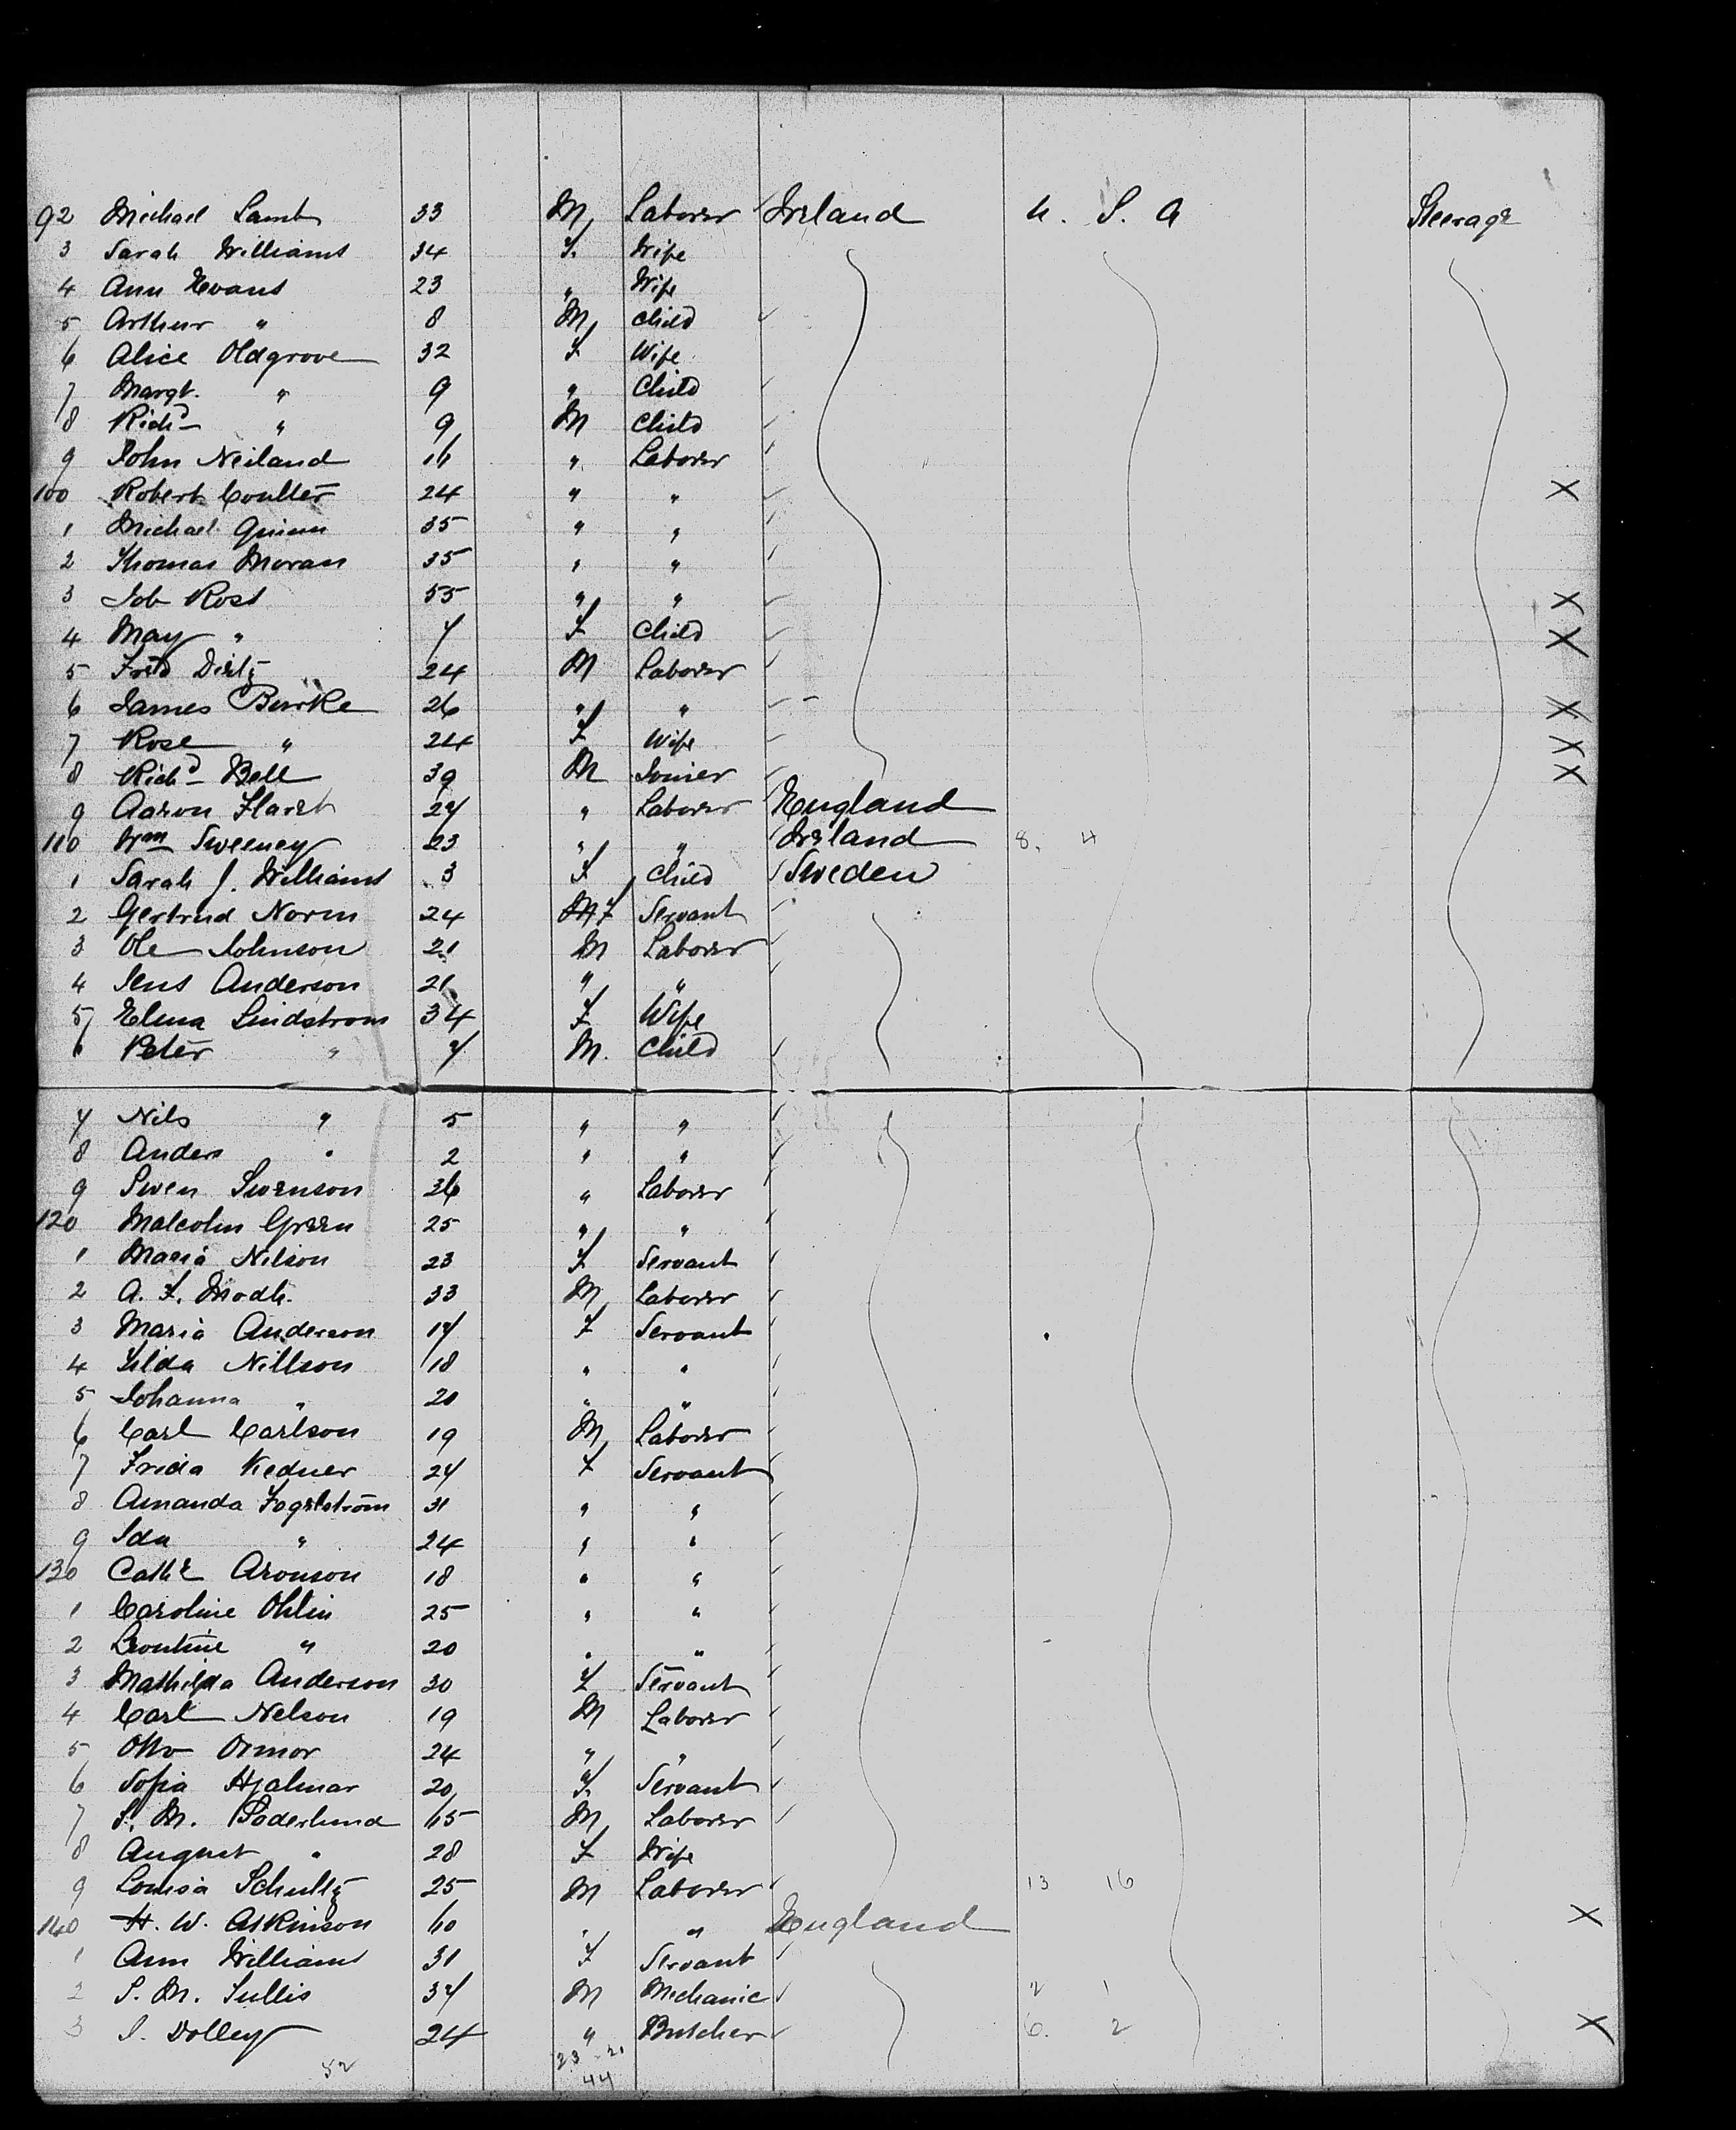 92 Michael Lamb 33 M Laborer Ireland U. S. A Steerage
3 Sarah Williams 34 F. Wife
4 Ann Evans 23 " Wife
5 Arthur " 8 M child
6 Alice Oldgrove 32 F Wife
7 Margt. " 9 " Child
8 Richd " 9 M child
9 John Neiland 16 " Laborer
100 Robert Coulter 24 " " X
1 Michael Quinn 35 " "
2 Thomas Moran 35 " "
3 Job Rost 55 " " X
4 May " 7 F Child X
5 Fred Dietz 24 M Laborer
6 James Burke 26 " " X
7 Rose " 24 F Wife X
8 Richd Bell 39 M Joiner X
9 Aaron 27 " Laborer England
110 Wm Sweeney 23 " " Ireland 8. 4
1 Sarah J. Williams 3 F Child Sweden
2 Gertrud Norin 24 F Servant
3 Ole Johnson 21 M Laborer
4 Jens Anderson 21 " "
5 Elina Lindstrom 34 F Wife
6 Peter " 7 M. Child
7 Nils " 5 " "
8 Anders " 2 " "
9 Swen Swenson 36 " Laborer
120 Malcolm Green 25 " "
1 Maria Nilson 23 F Servant
2 A. F. Modh. 33 M Laborer
3 Maria Anderson 17 F Servant
4 Hilda Nillson 18 " "
5 Johanna " 20 " "
6 Carl Carlson 19 M Laborer
7 Frida Kedner 27 F Servant
8 Amanda Fagelström 31 " "
9 Ida " 24 " "
130 Cathe Aronson 18 " "
1 Caroline Ohlin 25 " "
2 Leontine " 20 " "
3 Mathilda Anderson 30 F Servant
4 Carl Nelson 19 M Laborer
5 Otto Ormor 24 " "
6 Sofia Hjalmar 20 F. Servant
7 S. M. Soderlund 65 M Laborer
8 August " 28 F Wife
9 Louisa Schultz 25 M Laborer 13 16
140 H. W. Atkinson 60 " " England X
1 Ann Williams 31 F Servant
2 S. M. Tullis 37 M Mechanic 2 1
3 S. Dolley 24 " Butcher 6. 2 X
52 23 21
44